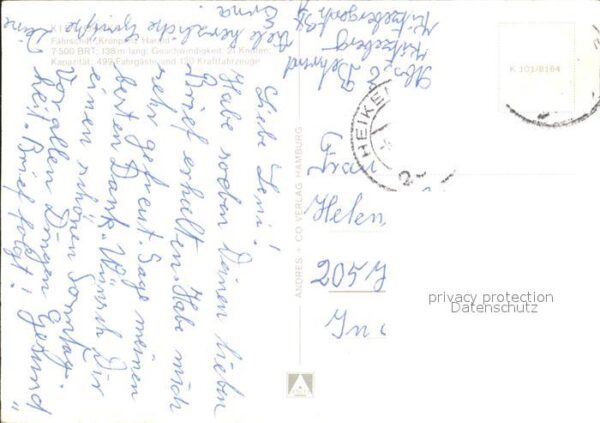 K I E L
Fährschiff „Kronprins Harald"
7 500 BRT; 138 m lang; Geschwindigkeit: 21 Knoten;
Kapazität: 499 Fahrgäste und 120 Kraftfahrzeuge
Liebe Leni!
Habe soeben Deinen lieben
Brief erhalten. Habe mich
sehr gefreut. Sage meinen
besten Dank. Wünsch Dir
einen schönen Sonntag.
Vor allen Dingen Gesund
heit. Brief folgt!
Deine
Erna.
Viele herzliche Grüße
Abs. E. Behrend
Kitzeberg
Kitzebergstr.
ANDRES + CO VERLAG HAMBURG
K 101/8164
HEIKEN
2
Frau
Helen
205
privacy protection
Datenschutz